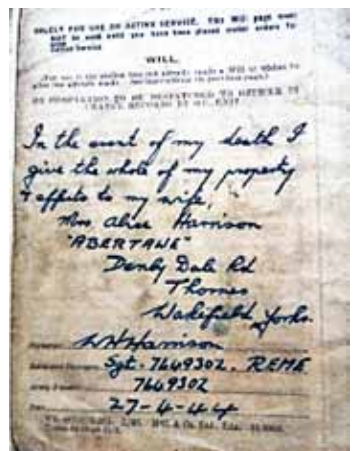 SOLELY FOR USE ON ACTIVE SERVICE. This Will page must
NOT be used until you have been placed under orders for
Active Service
WILL.
In the event of my death I
give the whole of my property
& effects to my wife,
Mrs Alice Harrison
"ABERTAWE"
Denby Dale Rd
Thornes
Wakefield Yorks.
WHHarrison
Sgt. 7649302. REME
7649302
27-4-44